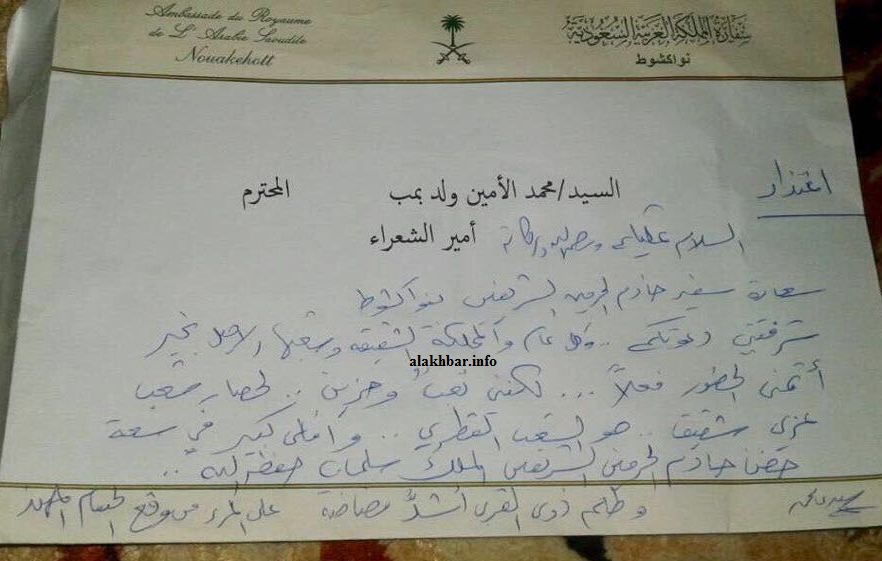 Ambassade du Royaume
de L'Arabie Saoudite
Nouakchott
سفارة المملكة العربية السعودية
نواكشوط
اعتذار
السيد/محمد الأمين ولد بمب المحترم
أمير الشعراء
السلام عليكم ورحمة الله وبركاته
سعادة سفير خادم الحرمين الشريفين بنواكشوط
شرفتني دعوتكم .. وكل عام والمملكة الشقيقة وشعبها الأصيل بخير
alakhbar.info
أتمنى الحضور فعلاً ... لكنني تعبٌ وحزين .. لحصار شعب
عربي شقيق .. هو الشعب القطري .. وأملي كبير في سعة
حضن خادم الحرمين الشريفين الملك سلمان حفظه الله ..
وظلم ذوي القربى أشدُّ مضاضة على المرء من وقع الحسام المهند